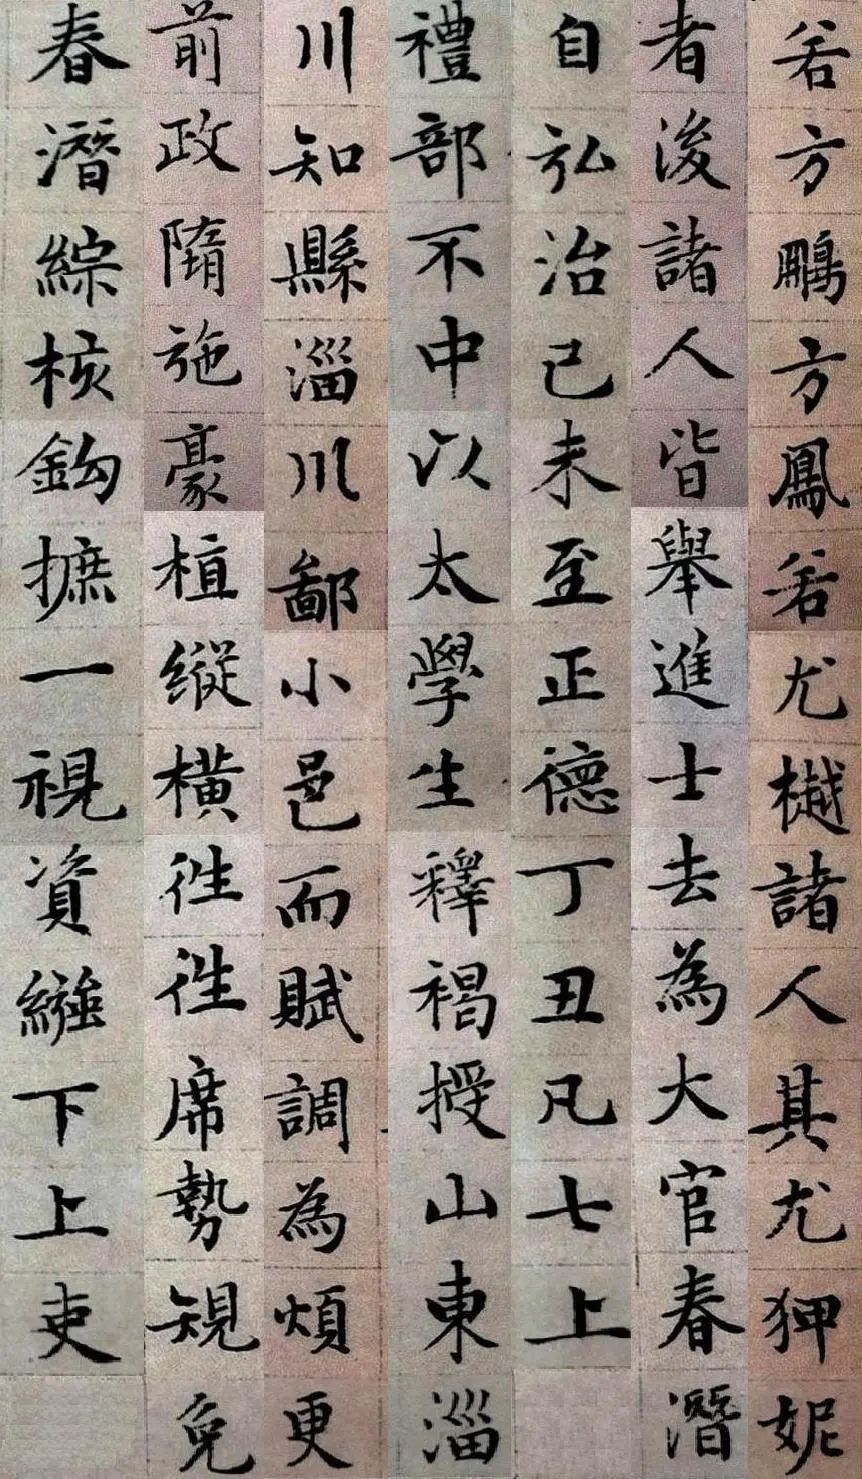 若方鵬方鳳若尤樾諸人其尤狎妮
者後諸人皆舉進士去為大官春潛
自弘治己未至正德丁丑凡七上
禮部不中以太學生釋褐授山東淄
川知縣淄川鄙小邑而賦調為煩更
前政隋施豪植縱橫往往席勢規免
春潛綜核鉤摭一視資繈下上吏